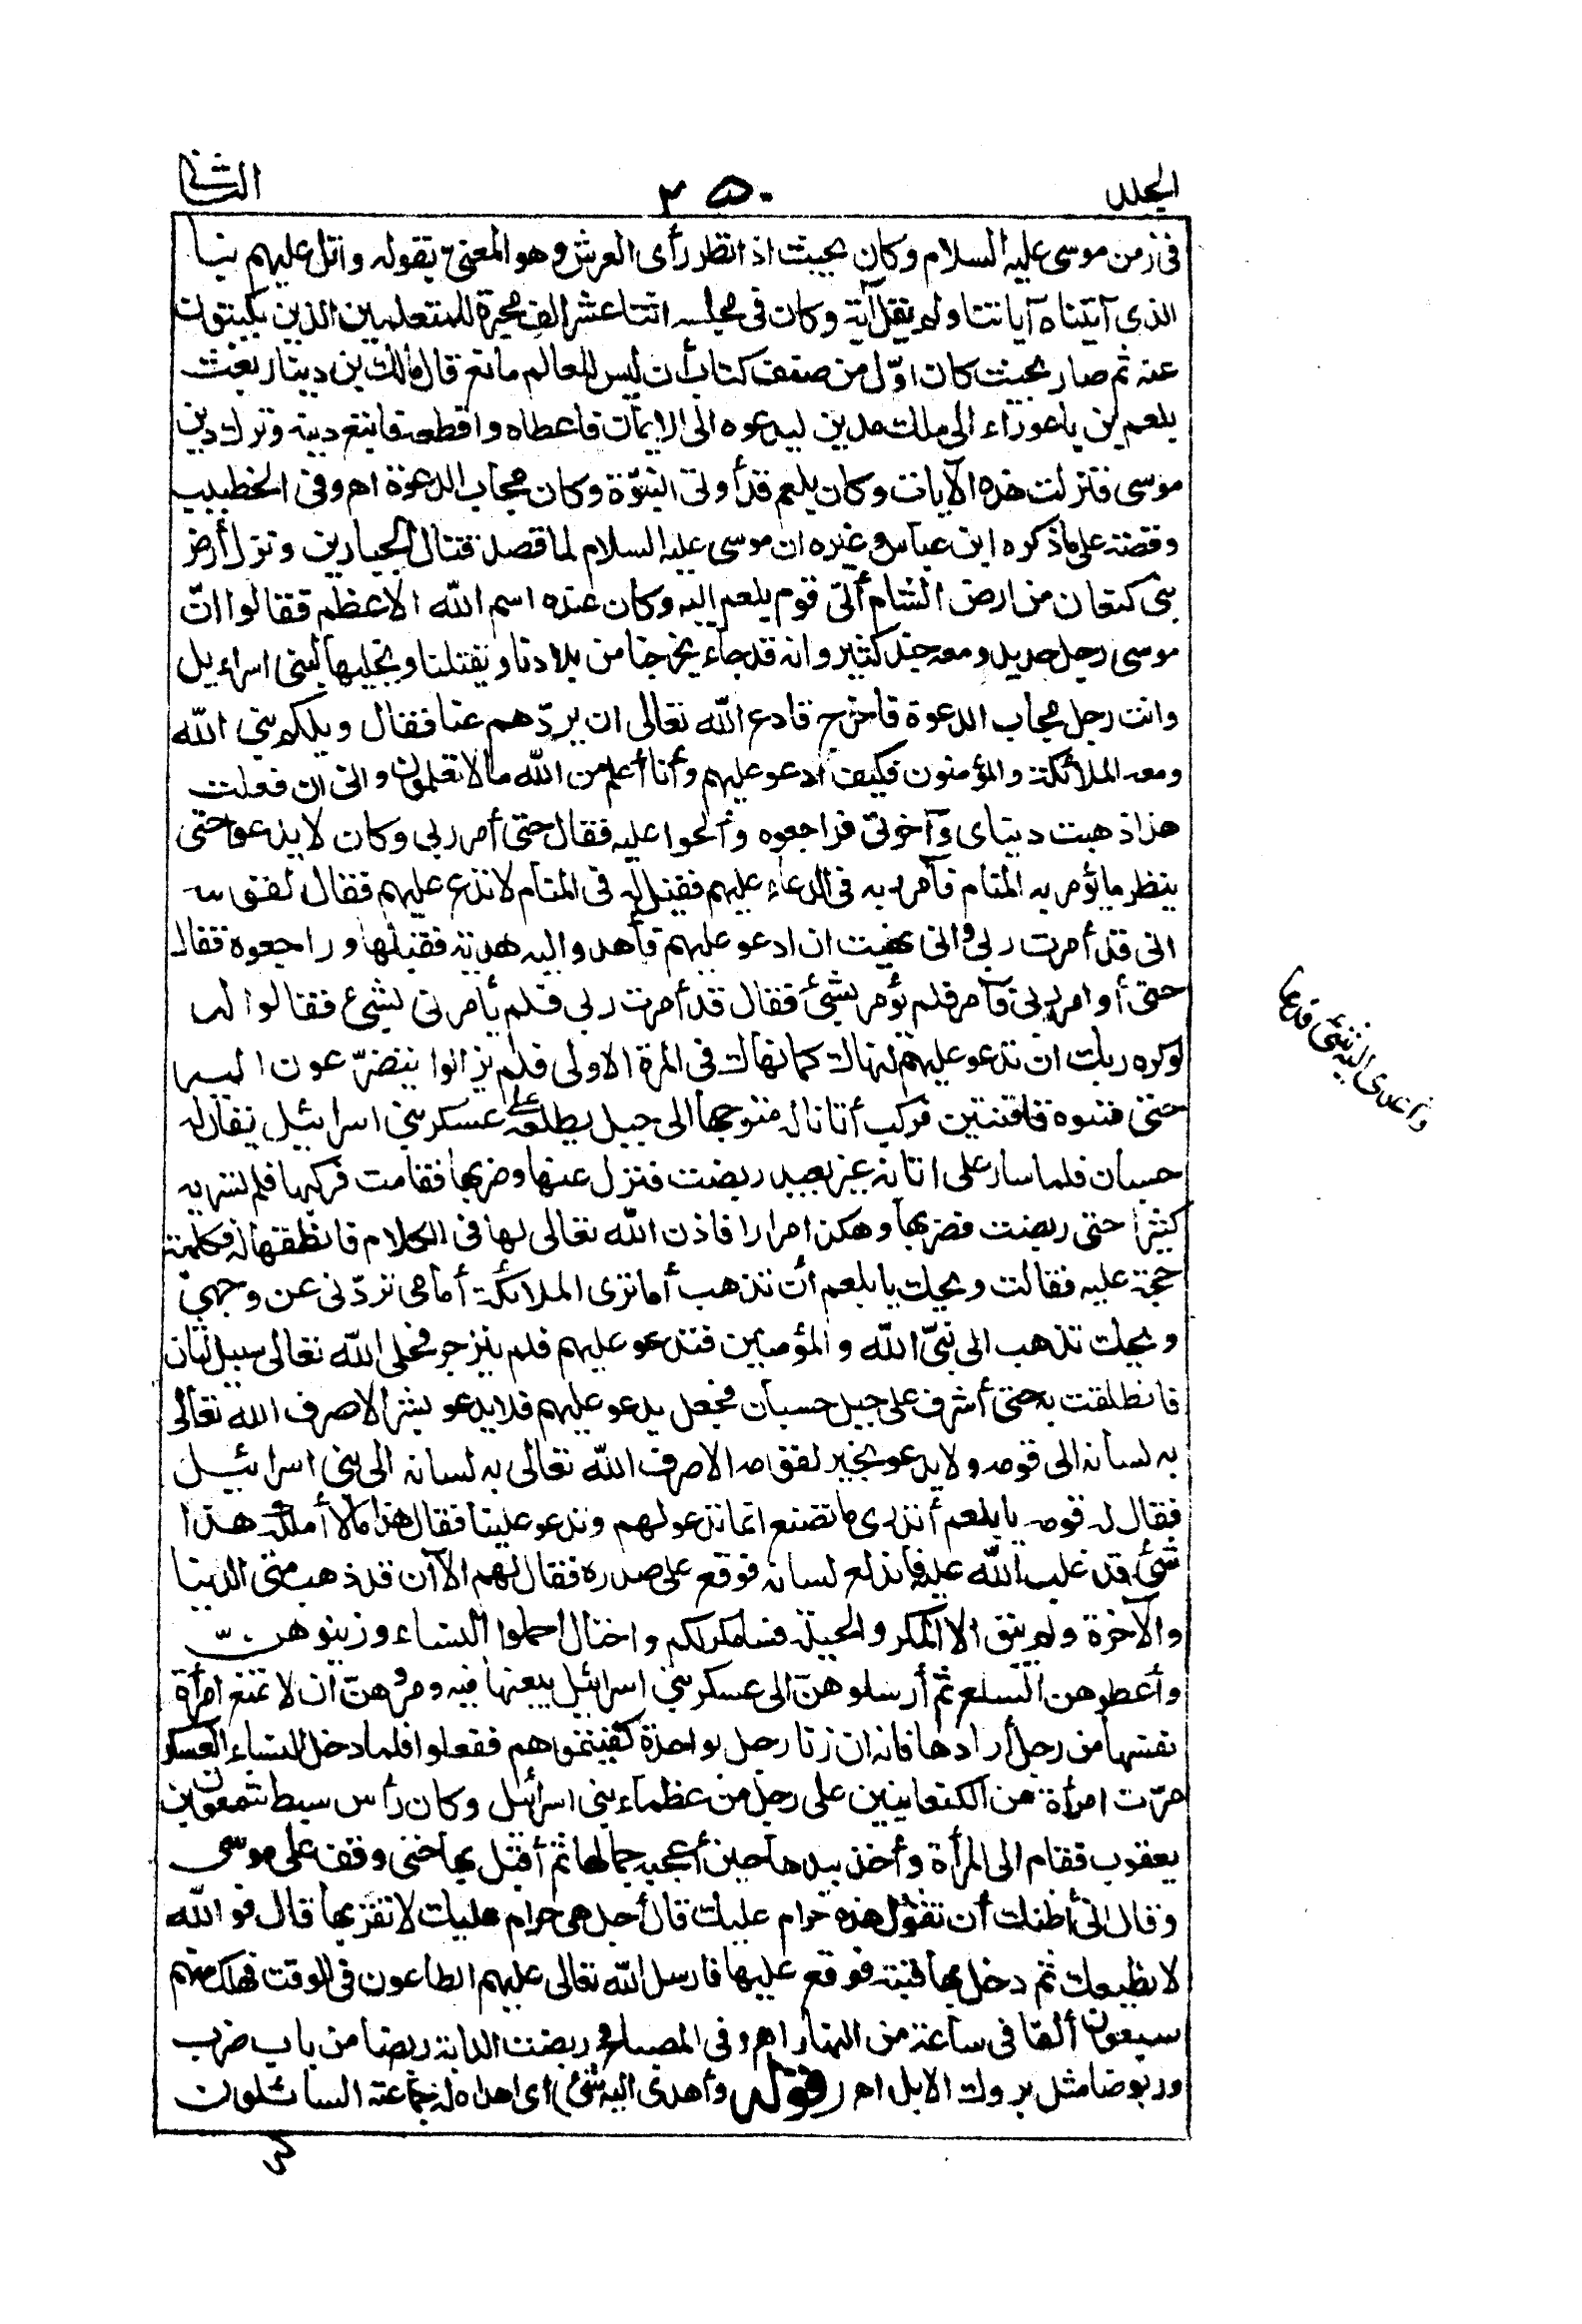 المجلد ٢٥٠ الثاني
في زمن موسى عليه السلام وكان بحيث اذا نظر رأى العرش وهو المعني بقوله واتل عليهم نبأ
الذي آتيناه آياتنا ولم يقل آية وكان في مجلسه اثنتا عشر الف محبرة للمتعلمين الذين يكتبون
عنه ثم صار بحيث كان اوّل من صنف كتابا أن ليس للعالم مانع قال مالك بن دينار بعث
بلعم بن باعوراء الى ملك مدين ليدعوه الى الايمان فاعطاه واقطعه فاتبع دينه وترك دين
موسى فنزلت هذه الآيات وكان بلعم قد أوتي النبوّة وكان مجاب الدعوة اهـ وفي الخطيب
وقصته على ماذكره ابن عباس وغيره ان موسى عليه السلام لما قصد قتال الجبارين ونزل أرض
بني كنعان من ارض الشام أتى قوم بلعم اليه وكان عنده اسم الله الاعظم فقالوا انّ
موسى رجل حديد ومعه جند كثير وانه قد جاء يخرجنا من بلادنا ويقتلنا ويخليها لبني اسراءيل
وانت رجل مجاب الدعوة فاخرج فادع الله تعالى ان يردّهم عنا فقال ويلكم نبي الله
ومعه الملائكة والمؤمنون فكيف أدعو عليهم وأنا أعلم من الله ما لا تعلمون واني ان فعلت
هذا ذهبت دنياى وآخرتي فراجعوه وألحوا عليه فقال حتى أمر ربي وكان لا يدعو حتى
ينظر ما يؤمر به المنام فآمر ربه في الدعاء عليهم فقيل له في المنام لا تدع عليهم فقال لقومه
اني قد أمرت ربي واني نهيت ان ادعو عليهم فأهدوا اليه هدية فقبلها وراجعوه فقال
حتى أوامر ربي فآمر فلم يؤمر بشئ فقال قد أمرت ربي فلم يأمرني بشيء فقالوا له
لو كره ربك ان تدعو عليهم لنهاك كما نهاك في المرة الاولى فلم يزالوا يتضرّعون اليه
حتى فتنوه فافتتن فركب أتانا له متوجها الى جبل يطلعه على عسكر بني اسرائيل يقال له
حسبان فلما سار على اتانه غير بعيد ربضت فنزل عنها وضربها فقامت فركبها فلم تسر به
كثيرا حتى ربضت فضربها وهكذا مرارا فاذن الله تعالى لها في الكلام فانطقها له فكلمته
حجة عليه فقالت ويحك يا بلعم أين تذهب أما ترى الملائكة أمامي تردّني عن وجهي
ويحك تذهب الى نبيّ الله والمؤمنين فتدعو عليهم فلم ينزجر فخلى الله تعالى سبيل الاتان
فانطلقت به حتى أشرف على جبل حسبان فجعل يدعو عليهم فلا يدعو بشر الا صرف الله تعالى
به لسانه الى قومه ولا يدعو بخير لقومه الا صرف الله تعالى به لسانه الى بني اسرائيل
فقال له قومه يا بلعم أتدري ما تصنع انما تدعو لهم وتدعو علينا فقال هذا ما لا أملكه هذا
شئ قد غلب الله عليه فاندلع لسانه فوقع على صدره فقال لهم الآن قد ذهب مني الدنيا
والآخرة ولم يبق الا المكر والحيلة فسأمكر لكم واحتال احملوا النساء وزينوهنّ
وأعطوهن السلع ثم أرسلوهنّ الى عسكر بني اسرائيل يبعنها فيه ومروهنّ ان لا تمنع امرأة
نفسها من رجل أرادها فانه ان زنا رجل بواحدة كفيتموهم ففعلوا فلما دخل النساء العسكر
مرّت امرأة من الكنعانيين على رجل من عظماء بني اسرائيل وكان رأس سبط شمعون بن
يعقوب فقام الى المرأة وأخذ بيدها حين أعجبه جمالها ثم أقبل بها حتى وقف على موسى
وقال اني أظنك أن تقول هذه حرام عليك قال أجل هي حرام عليك لا تقربها قال فو الله
لا نطيعك ثم دخل بها قبته فوقع عليها فارسل الله تعالى عليهم الطاعون في الوقت فهلك منهم
سبعون ألفا في ساعة من النهار اهـ وفي المصباح ربضت الدابة ربضا من باب ضرب
وربوضا مثل بروك الابل اهـ (قوله وأهدى اليه شئ) اى اهداه له جماعته السائلون
وأهدى اليه شئ فدعا